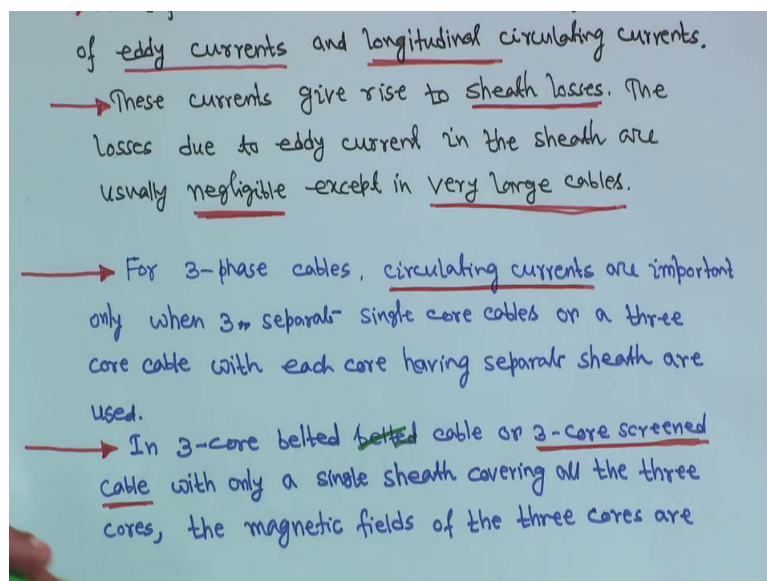 of eddy currents and longitudinal circulating currents.
These currents give rise to sheath losses. The
losses due to eddy current in the sheath are
usually negligible except in very large cables.
For 3-phase cables, circulating currents are important
only when 3 separate single core cables or a three
core cable with each core having separate sheath are
used.
In 3-core belted belted cable or 3-core screened
cable with only a single sheath covering all the three
cores, the magnetic fields of the three cores are